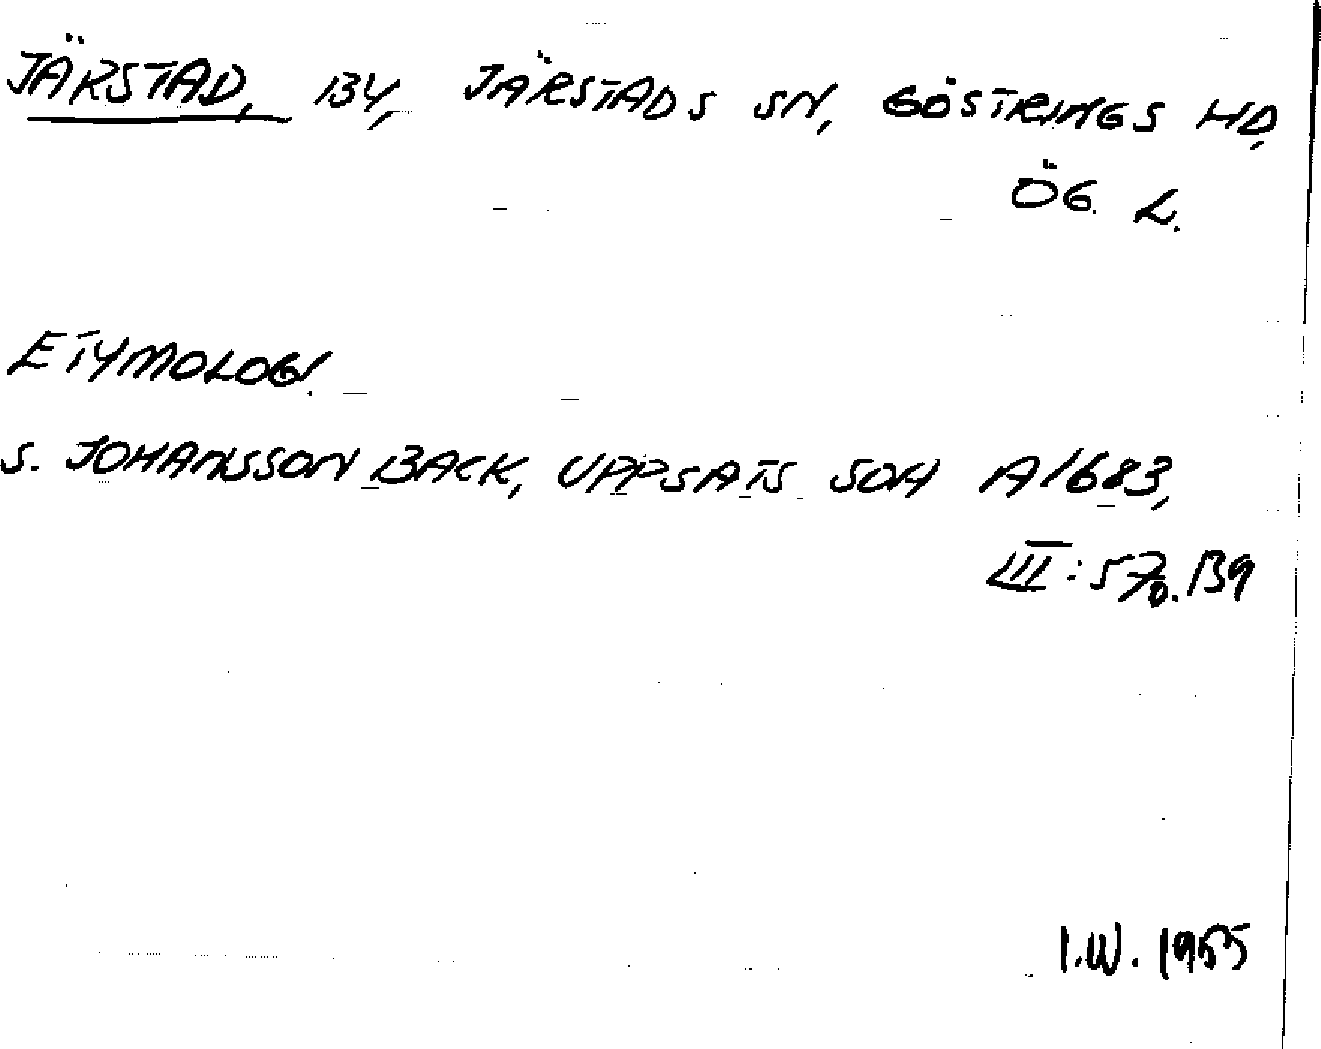 JÄRSTAD, BY, JÄRSTADS SN, GÖSTRINGS HD,
ÖG. L.
ETYMOLOGI.
S. JOHANSSON BACK, UPPSATS SOM A1683,
III: 570. B9
I.W. 1955